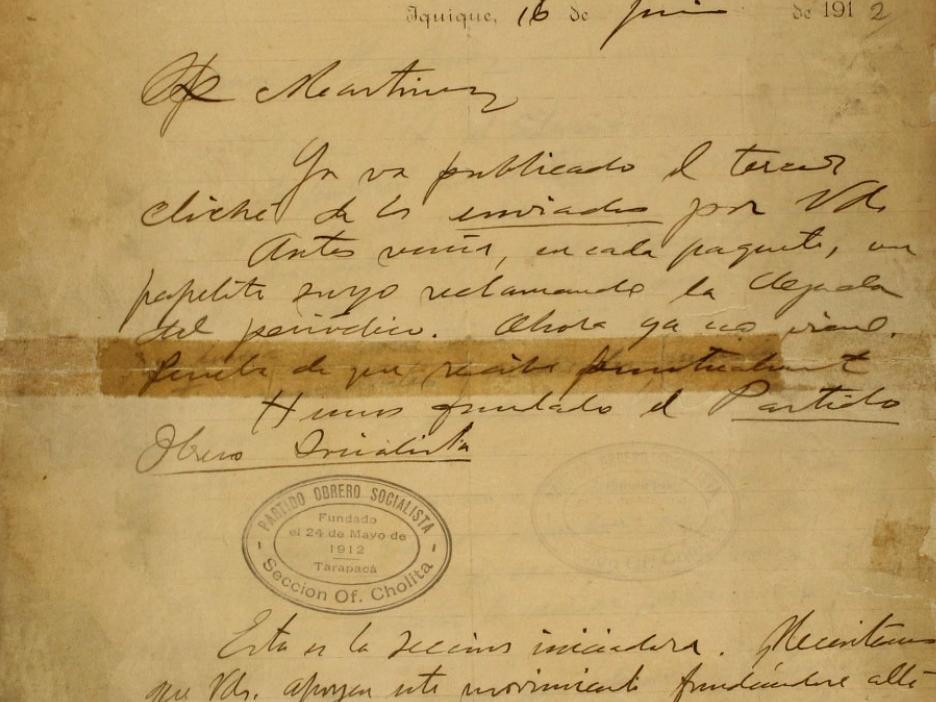 Iquique, 16 de Junio de 1912
Martinez
Ya va publicado el tercer
cliché de los enviados por Vds.
Antes venía, en cada paquete, un
papelito suyo reclamando la llegada
del periódico. Ahora ya no viene.
Prueba de que recibe puntualmente
Hemos fundado el Partido
Obrero Socialista
PARTIDO OBRERO SOCIALISTA
Fundado
el 24 de Mayo de
1912
Tarapacá
Seccion Of. Cholita
Esta es la seccion iniciadora. Necesitamos
que Vds. apoyen este movimiento fundándose allá